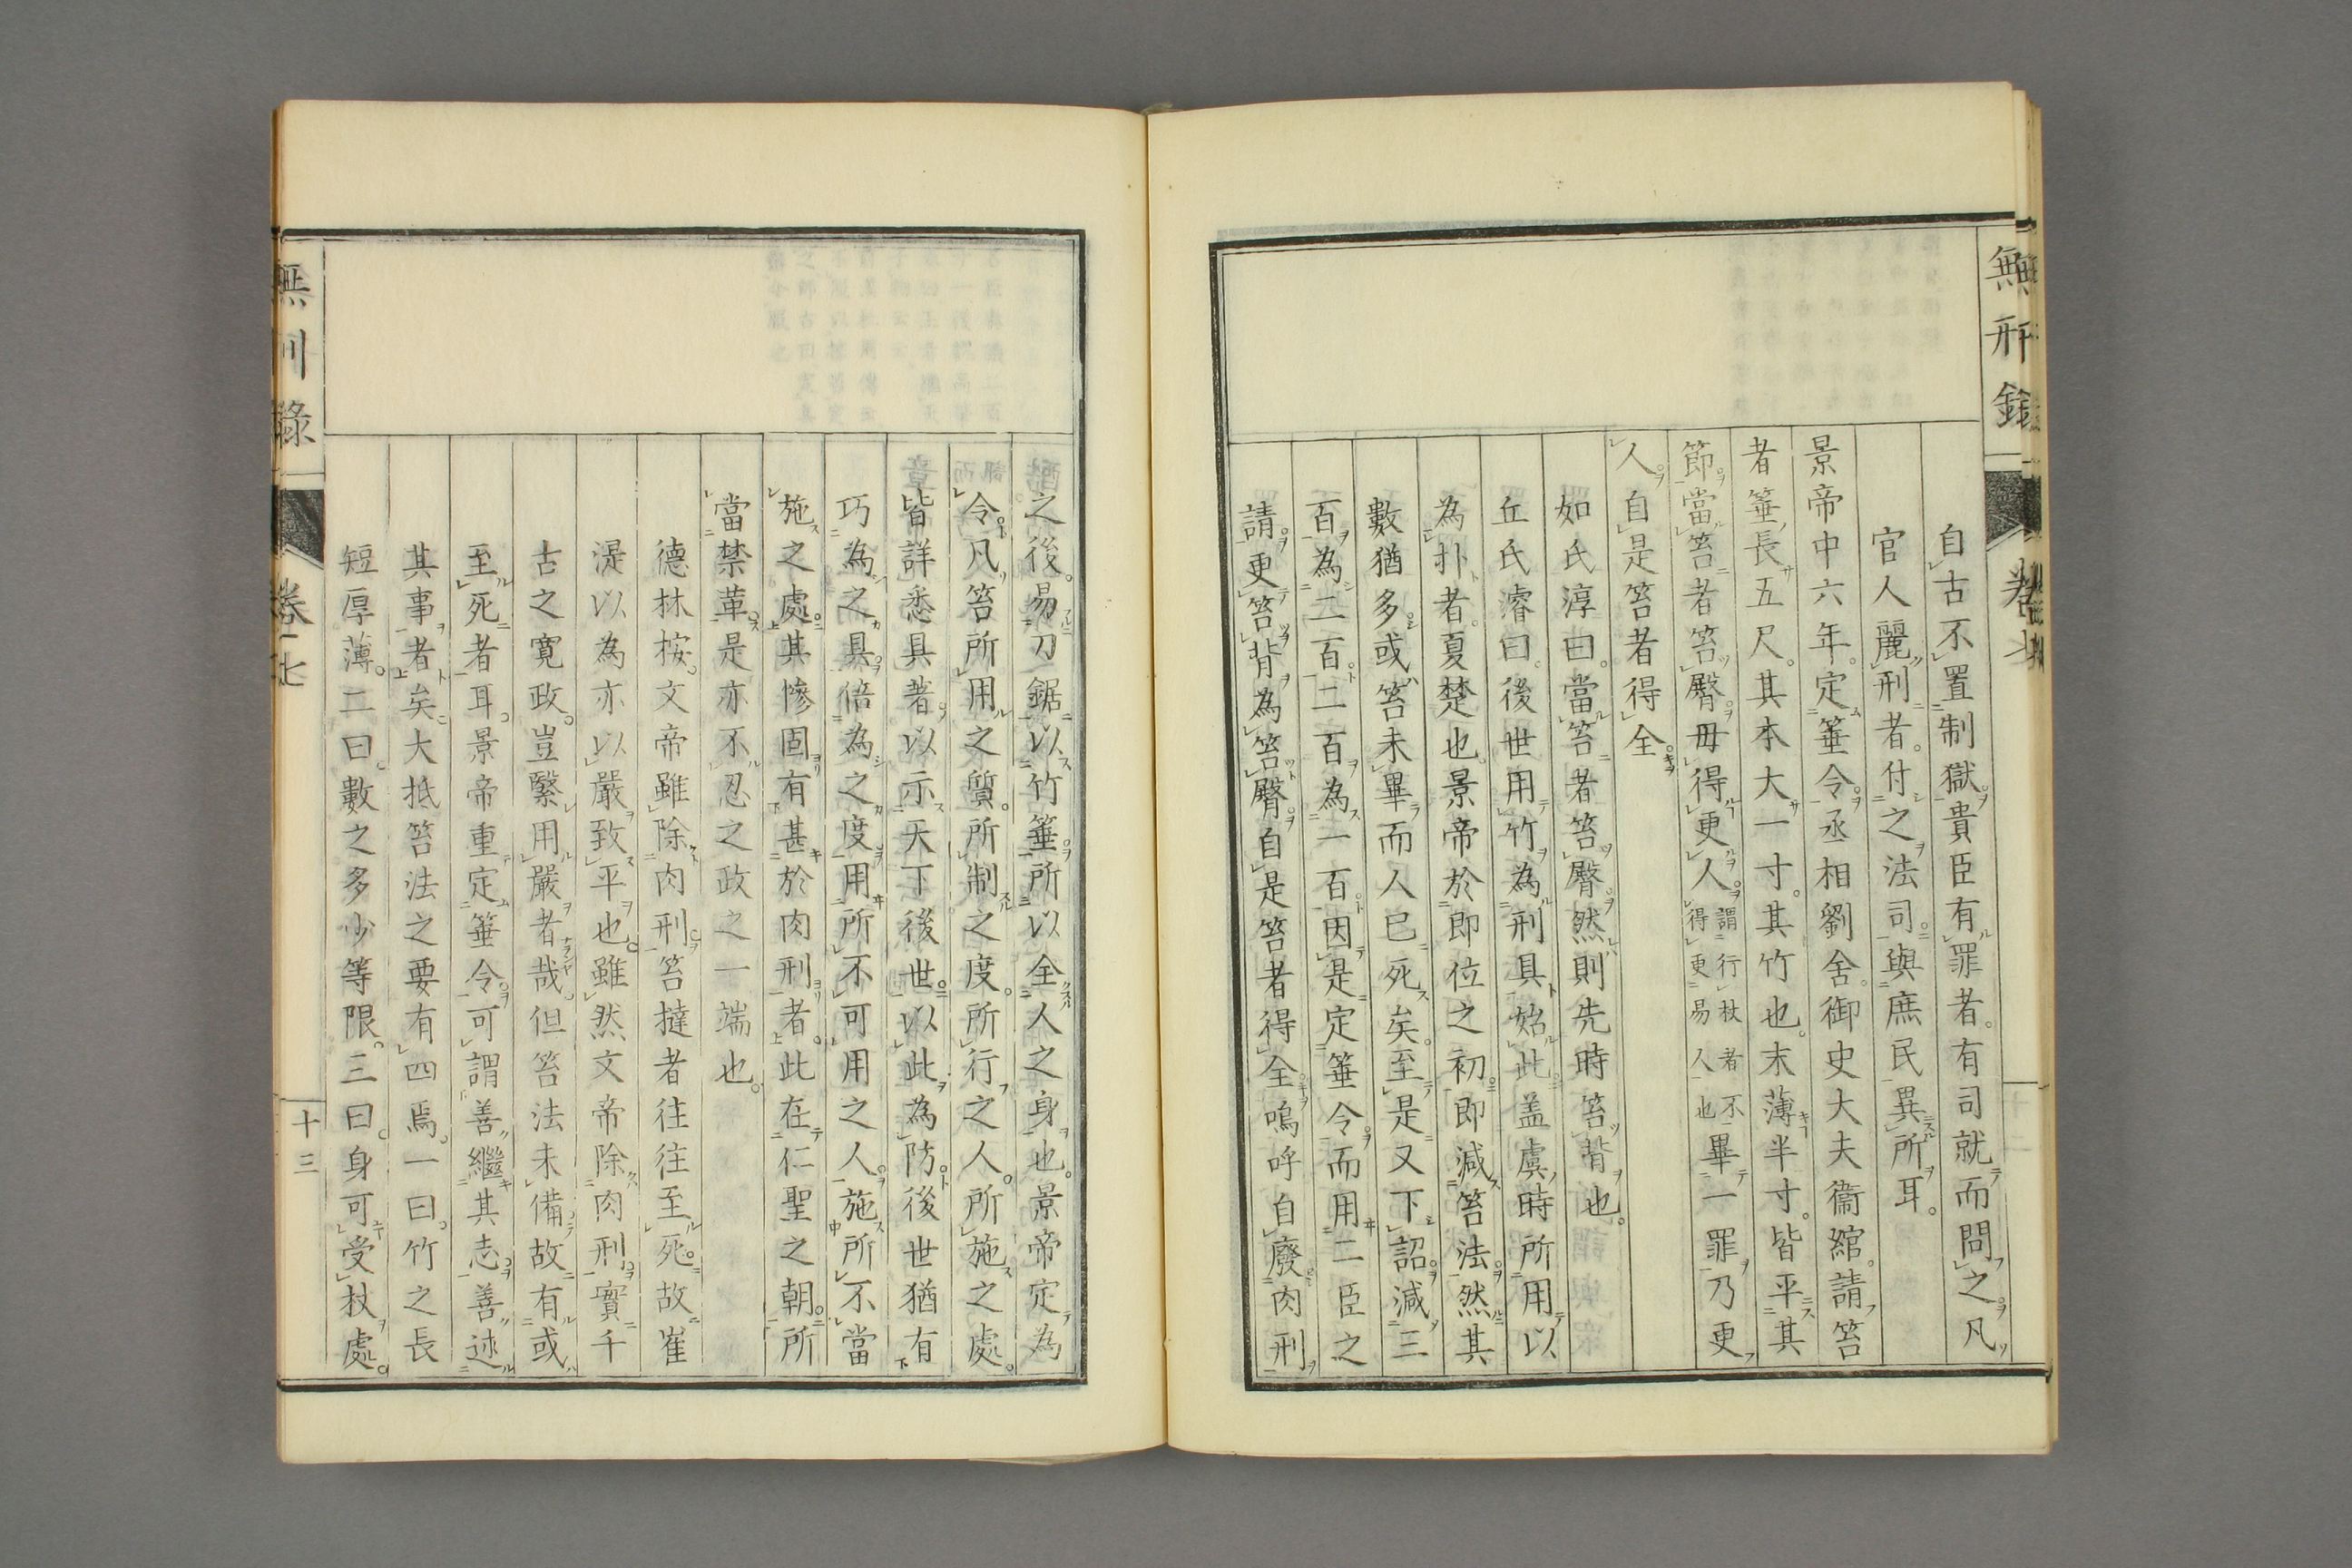 無刑錄
自古不置制獄。貴臣有罪者。有司就而問之。凡
官人麗刑者。付之法司。與庶民異所耳。
景帝中六年。定箠令。丞相劉舍。御史大夫衞綰。請笞
者箠長五尺。其本大一寸。其竹也。末薄半寸。皆平其
節。當笞者笞臀。毋得更人。謂行杖者不得更易人也畢一罪乃更
人。自是笞者得全。
如氏淳曰。當笞者笞臀。然則先時笞背也。
丘氏濬曰。後世用竹為刑具始此。盖虞時所用以
為扑者。夏楚也。景帝於即位之初。即減笞法。然其
數猶多。或笞未畢而人已死矣。至是又下詔。減三
百為二百。二百為一百。因是定箠令。而用二臣之
請。更笞背為笞臀。自是笞者得全。嗚呼自廢肉刑
之後。易刀鋸以竹箠。所以全人之身也。景帝定為
令。凡笞所用之質。所制之度。所行之人。所施之處。
皆詳悉具著。以示天下後世。以此為防。後世猶有
巧為之具。倍為之度。用所不可用之人。施所不當
施之處。其慘固有甚於肉刑者。此在仁聖之朝。所
當禁革。是亦不忍之政之一端也。
德林按。文帝雖除肉刑。笞撻者往往至死。故崔
湜以為亦以嚴致平也。雖然文帝除肉刑。實千
古之寬政。豈繄用嚴者哉。但笞法未備。故有或
至死者耳。景帝重定箠令。可謂善繼其志。善述
其事者矣。大抵笞法之要有四焉。一曰。竹之長
短厚薄。二曰。數之多少等限。三曰。身可受杖處。
無刑錄
卷十七
十三